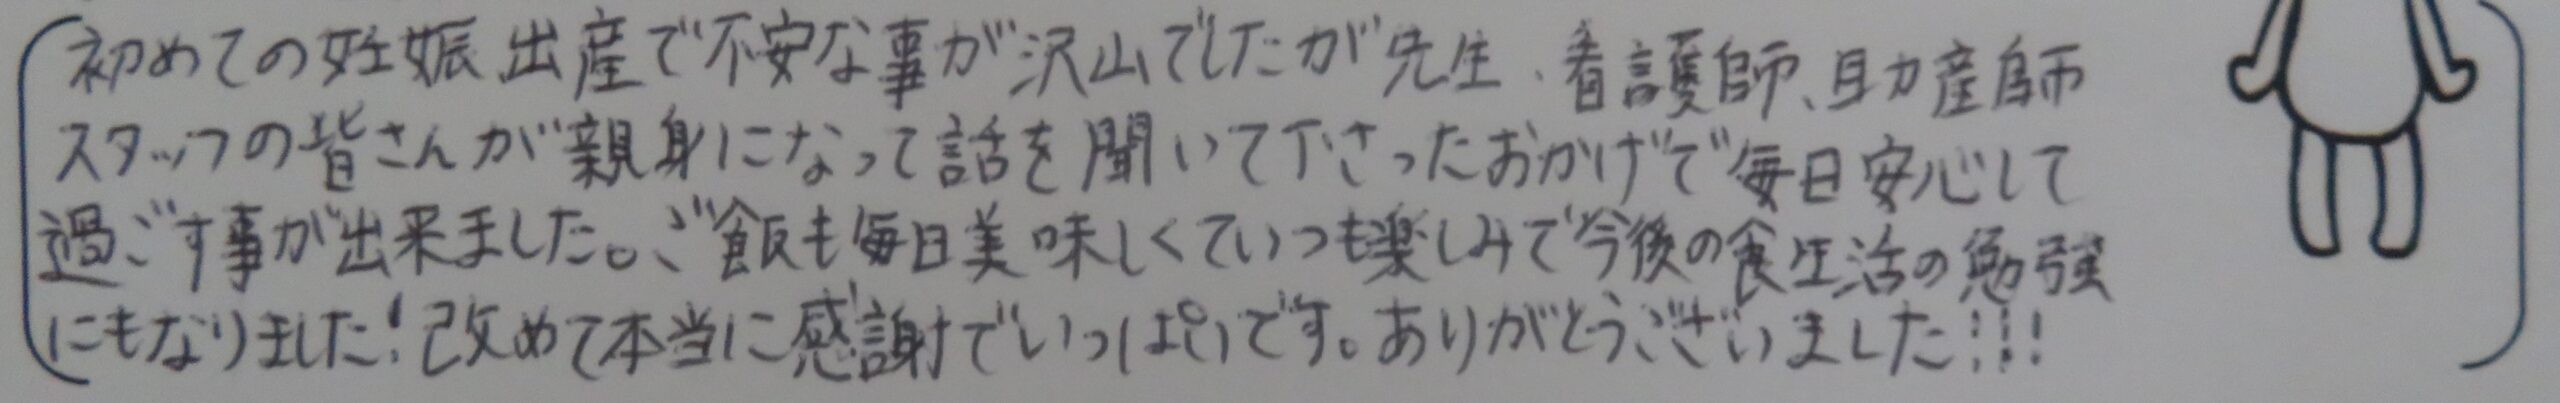 初めての妊娠、出産で不安な事が沢山でしたが先生、看護師、助産師
スタッフの皆さんが親身になって話を聞いて下さったおかげで毎日安心して
過ごす事が出来ました。ご飯も毎日美味しくていつも楽しみで今後の食生活の勉強
にもなりました！改めて本当に感謝でいっぱいです。ありがとうございました!!!